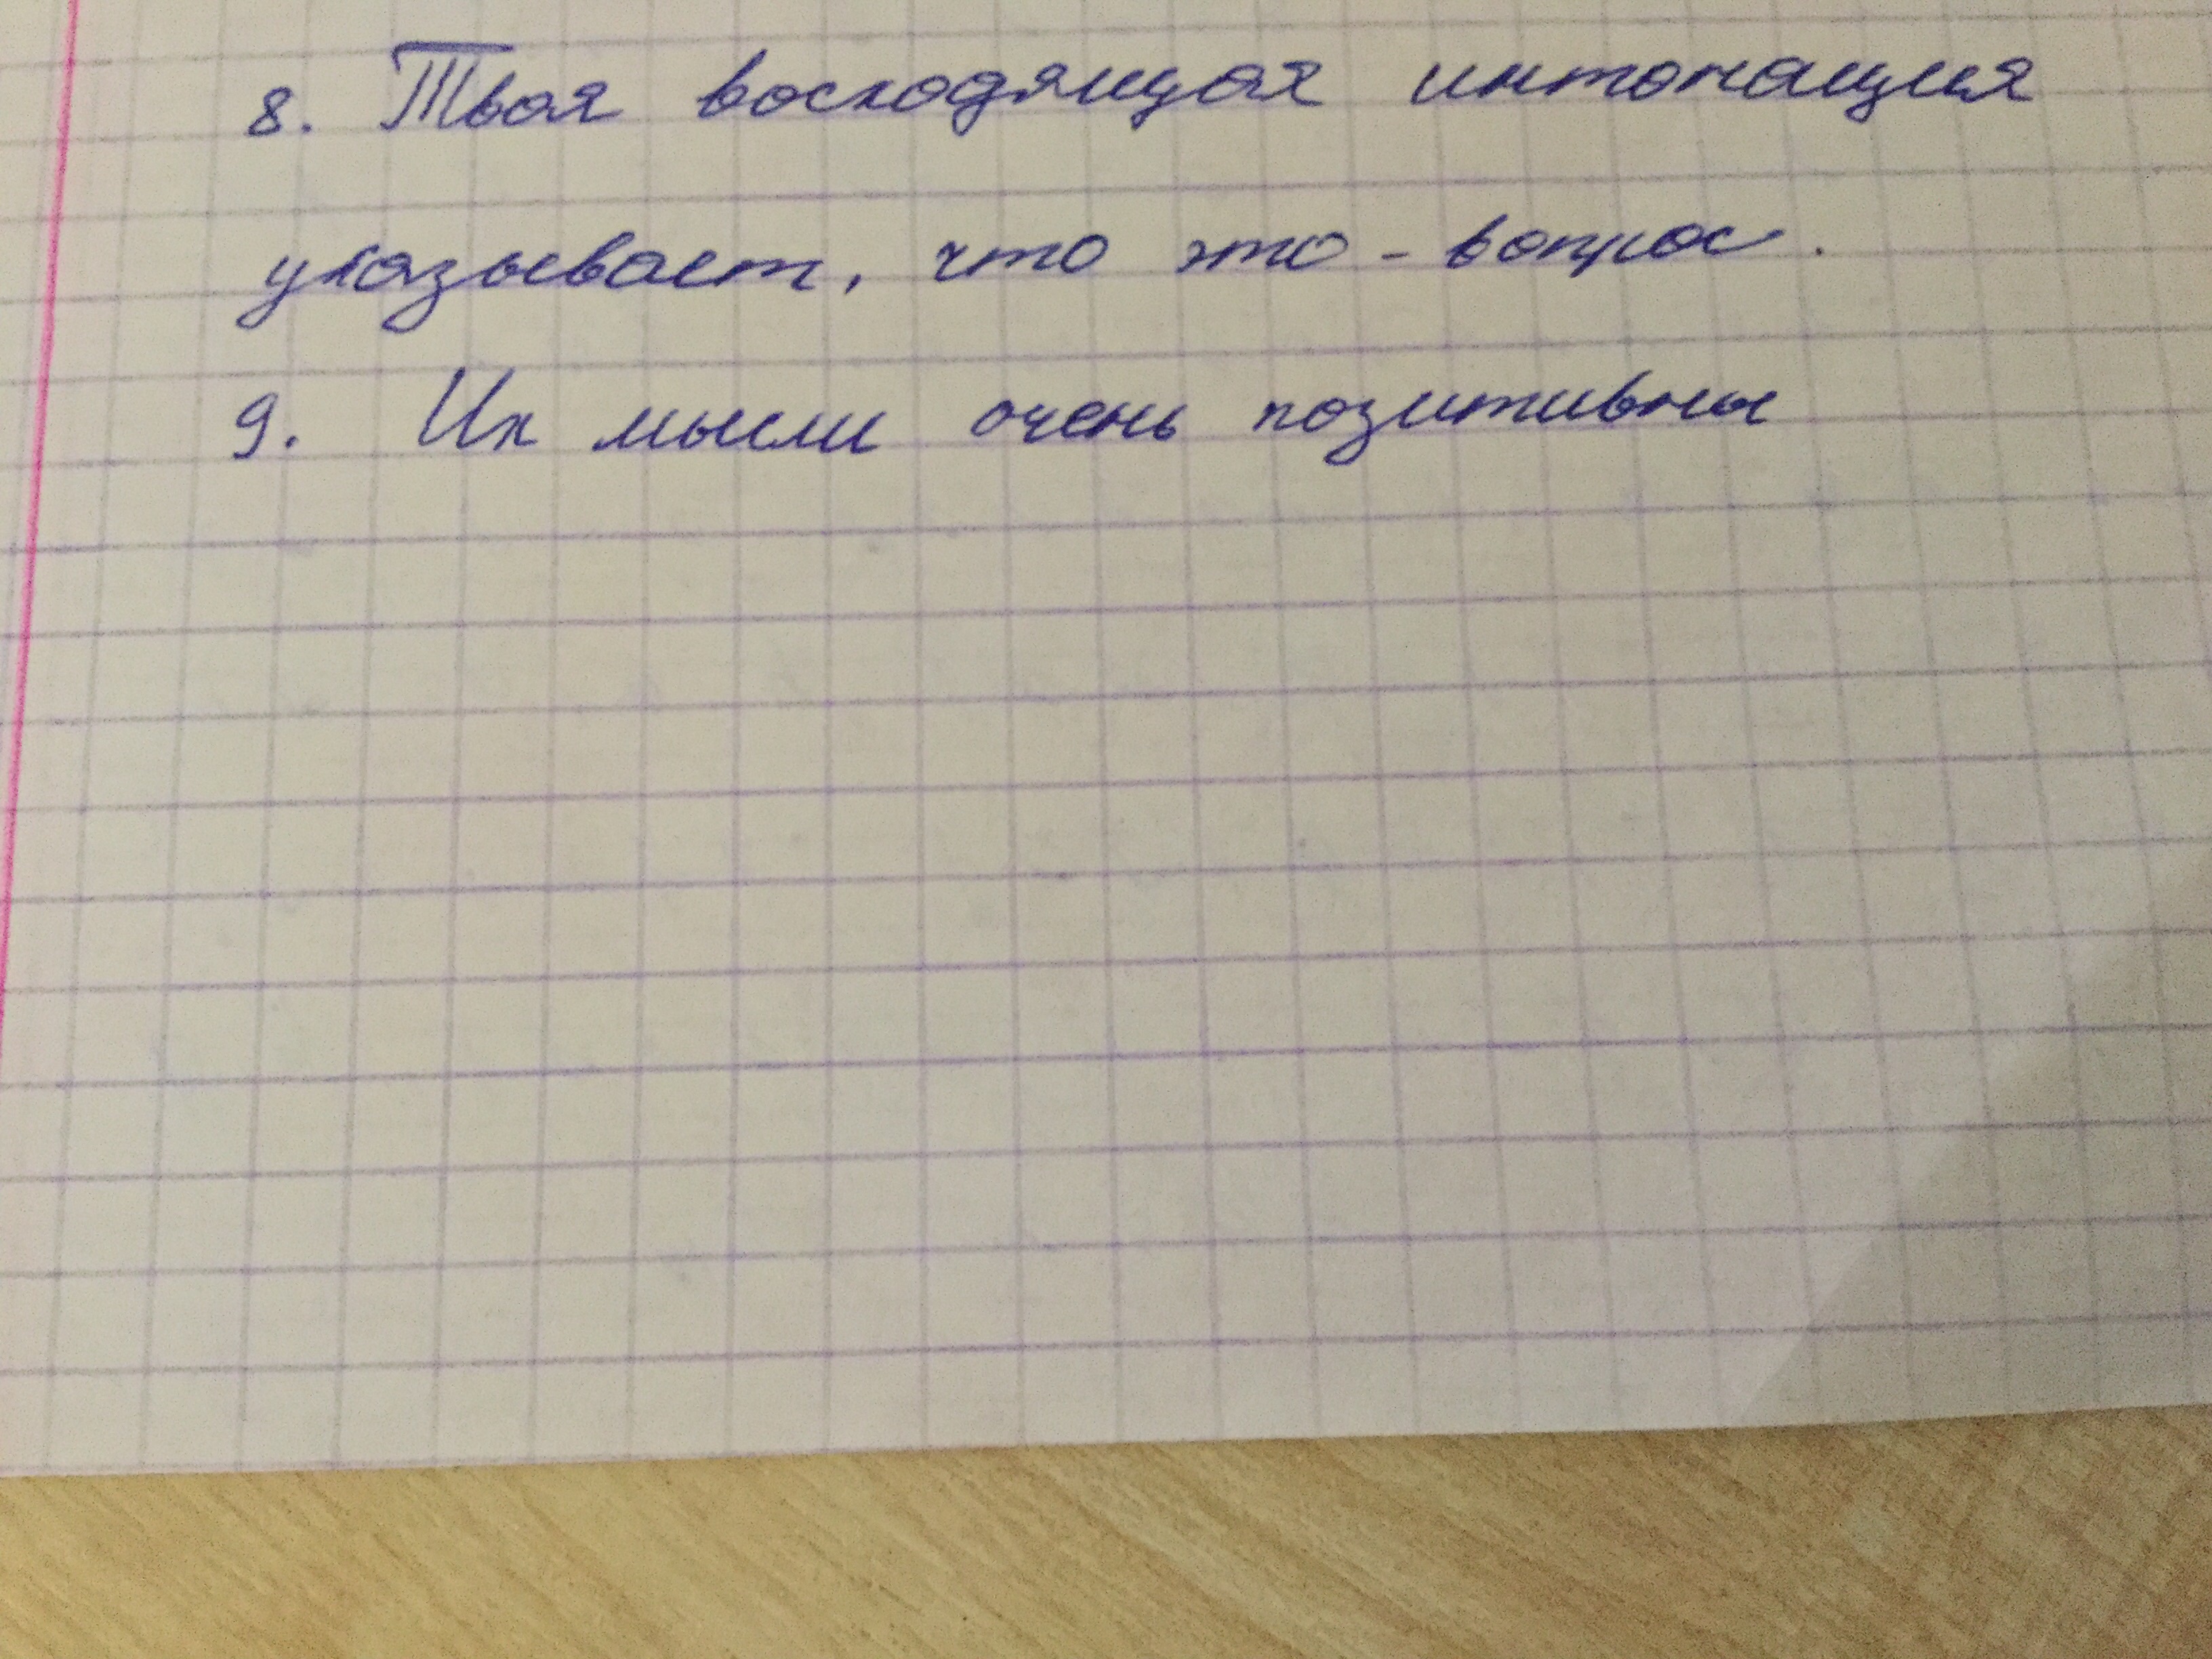 8. Твоя восходящая интонация
указывает, что это - вопрос.
9. Их мысли очень позитивны